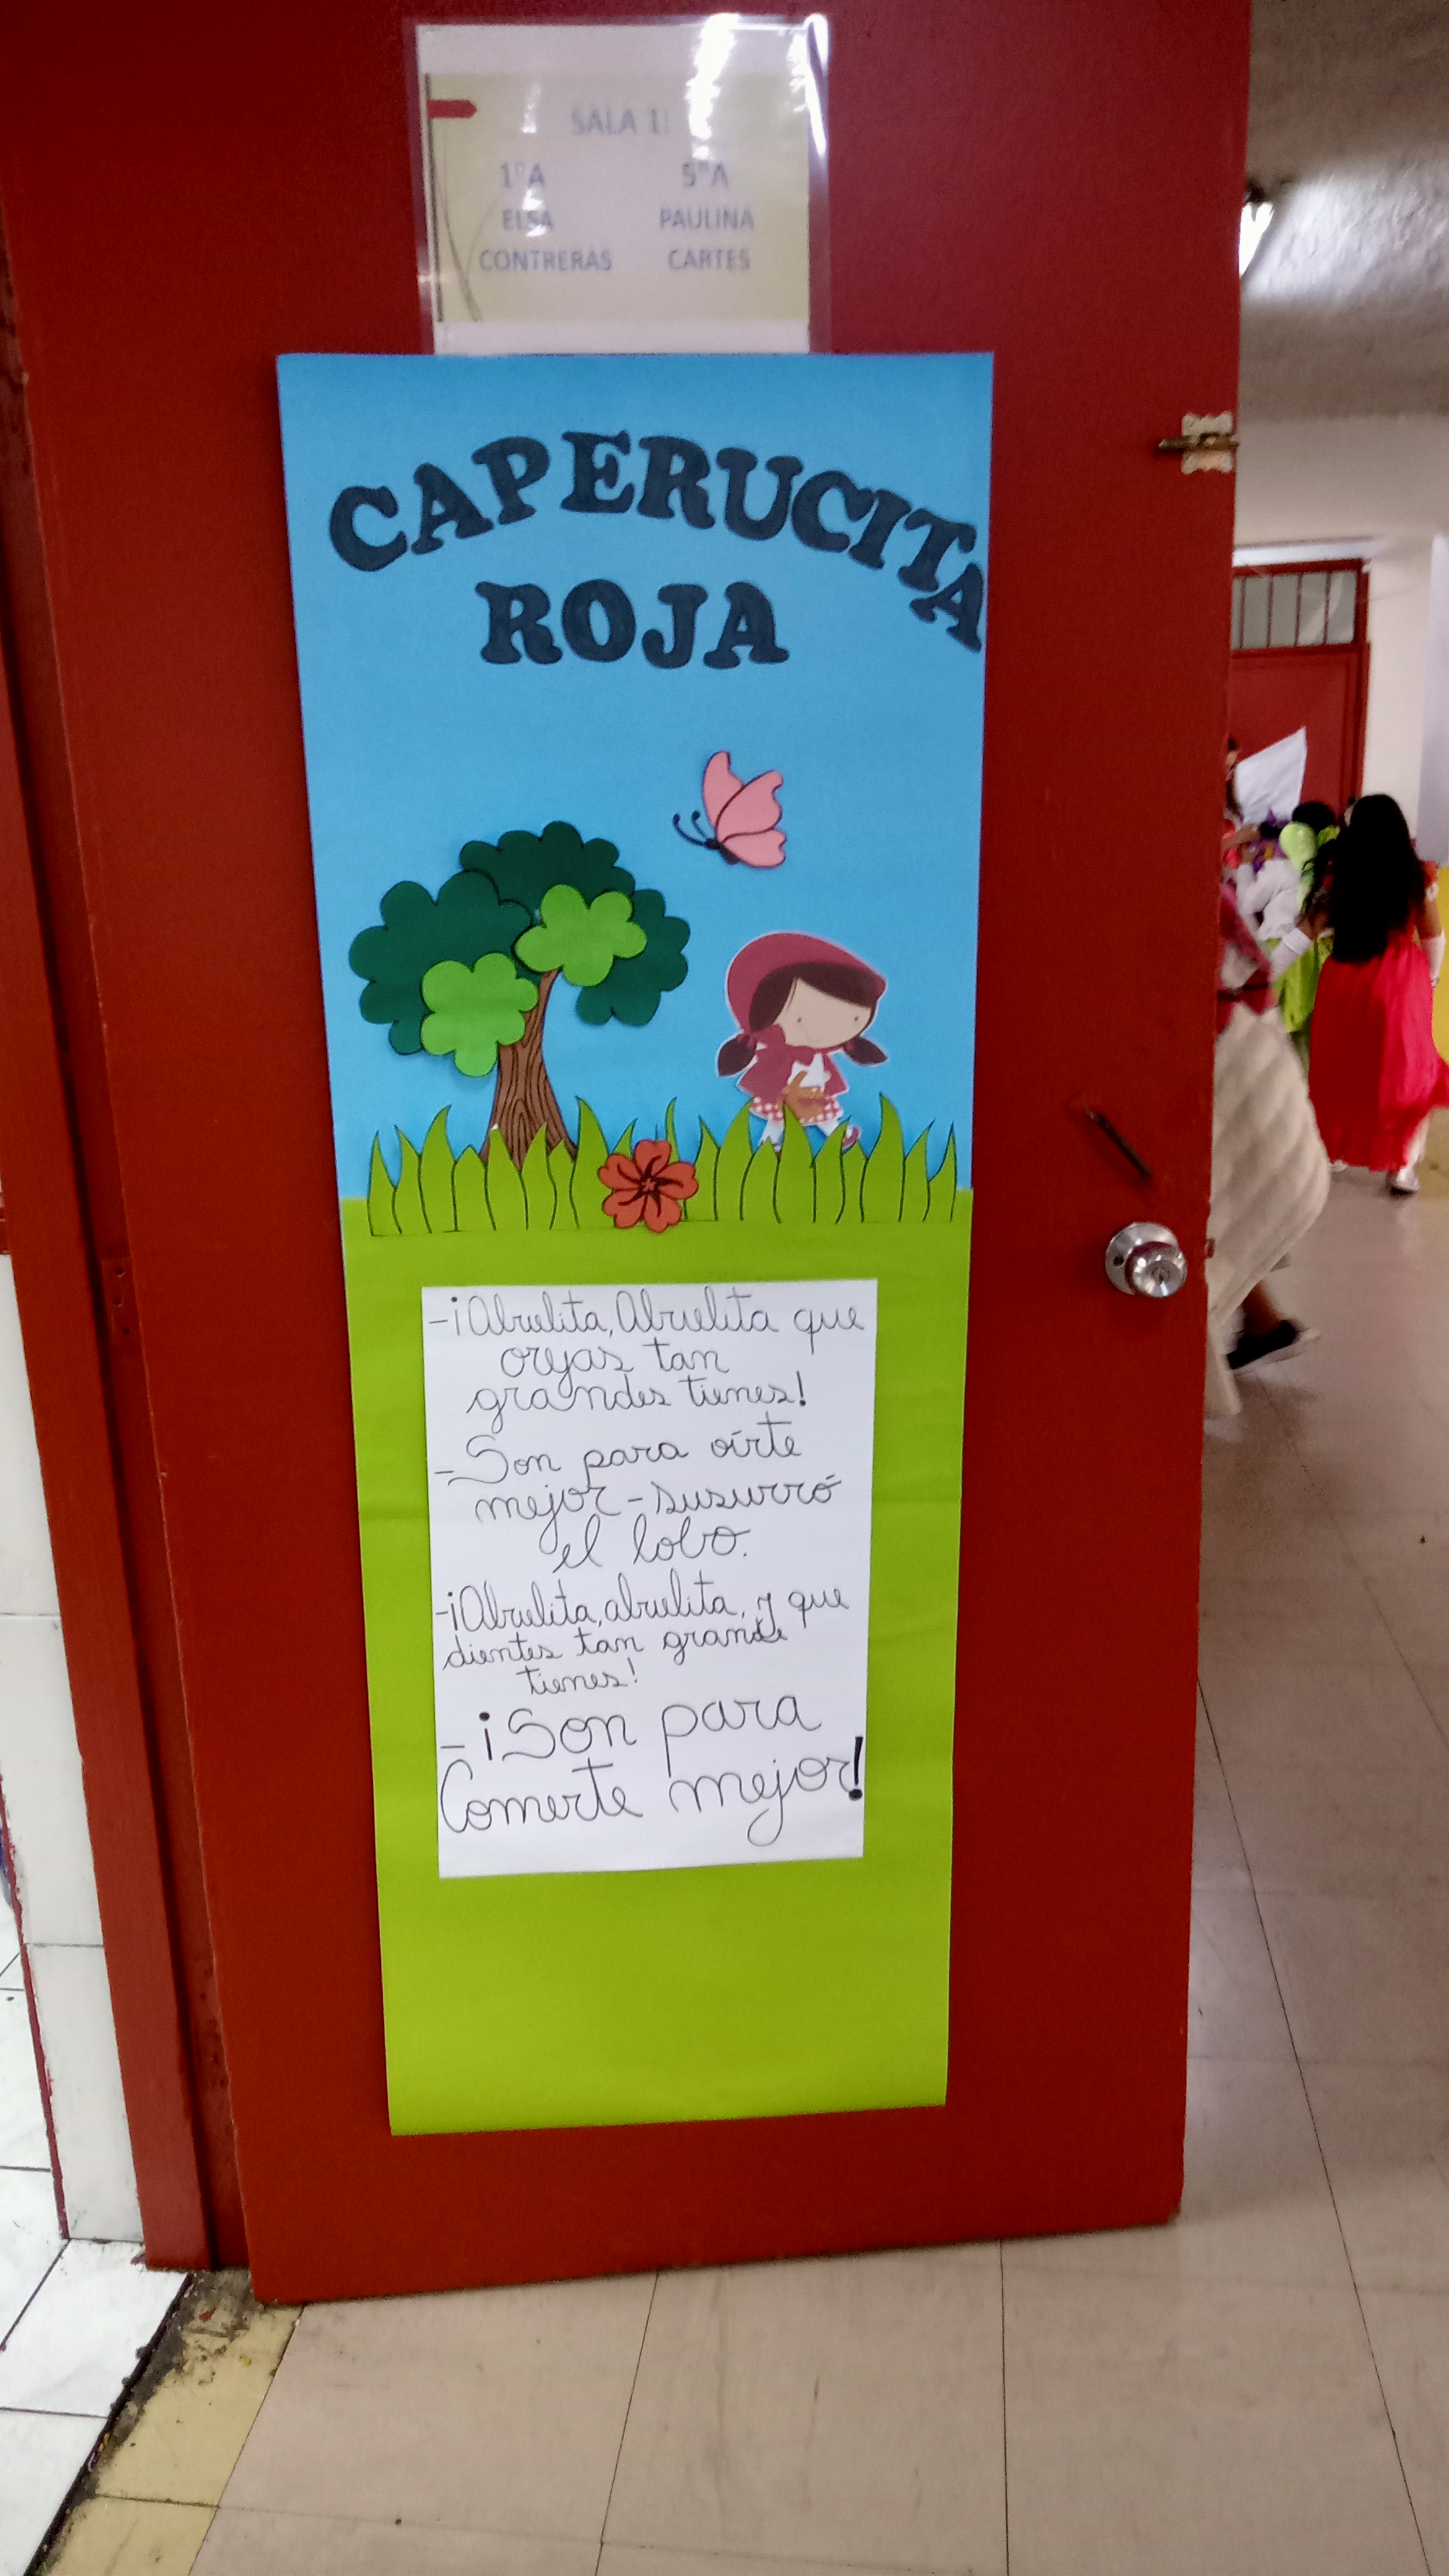 SALA 1
1°A 5°A
ELSA PAULINA
CONTRERAS CARTES
CAPERUCITA
ROJA
-¡Abuelita, Abuelita que
orejas tan
grandes tienes!
-Son para oírte
mejor-susurró
el lobo.
-¡Abuelita, abuelita, y que
dientes tan grande
tienes!
-¡Son para
Comerte mejor!